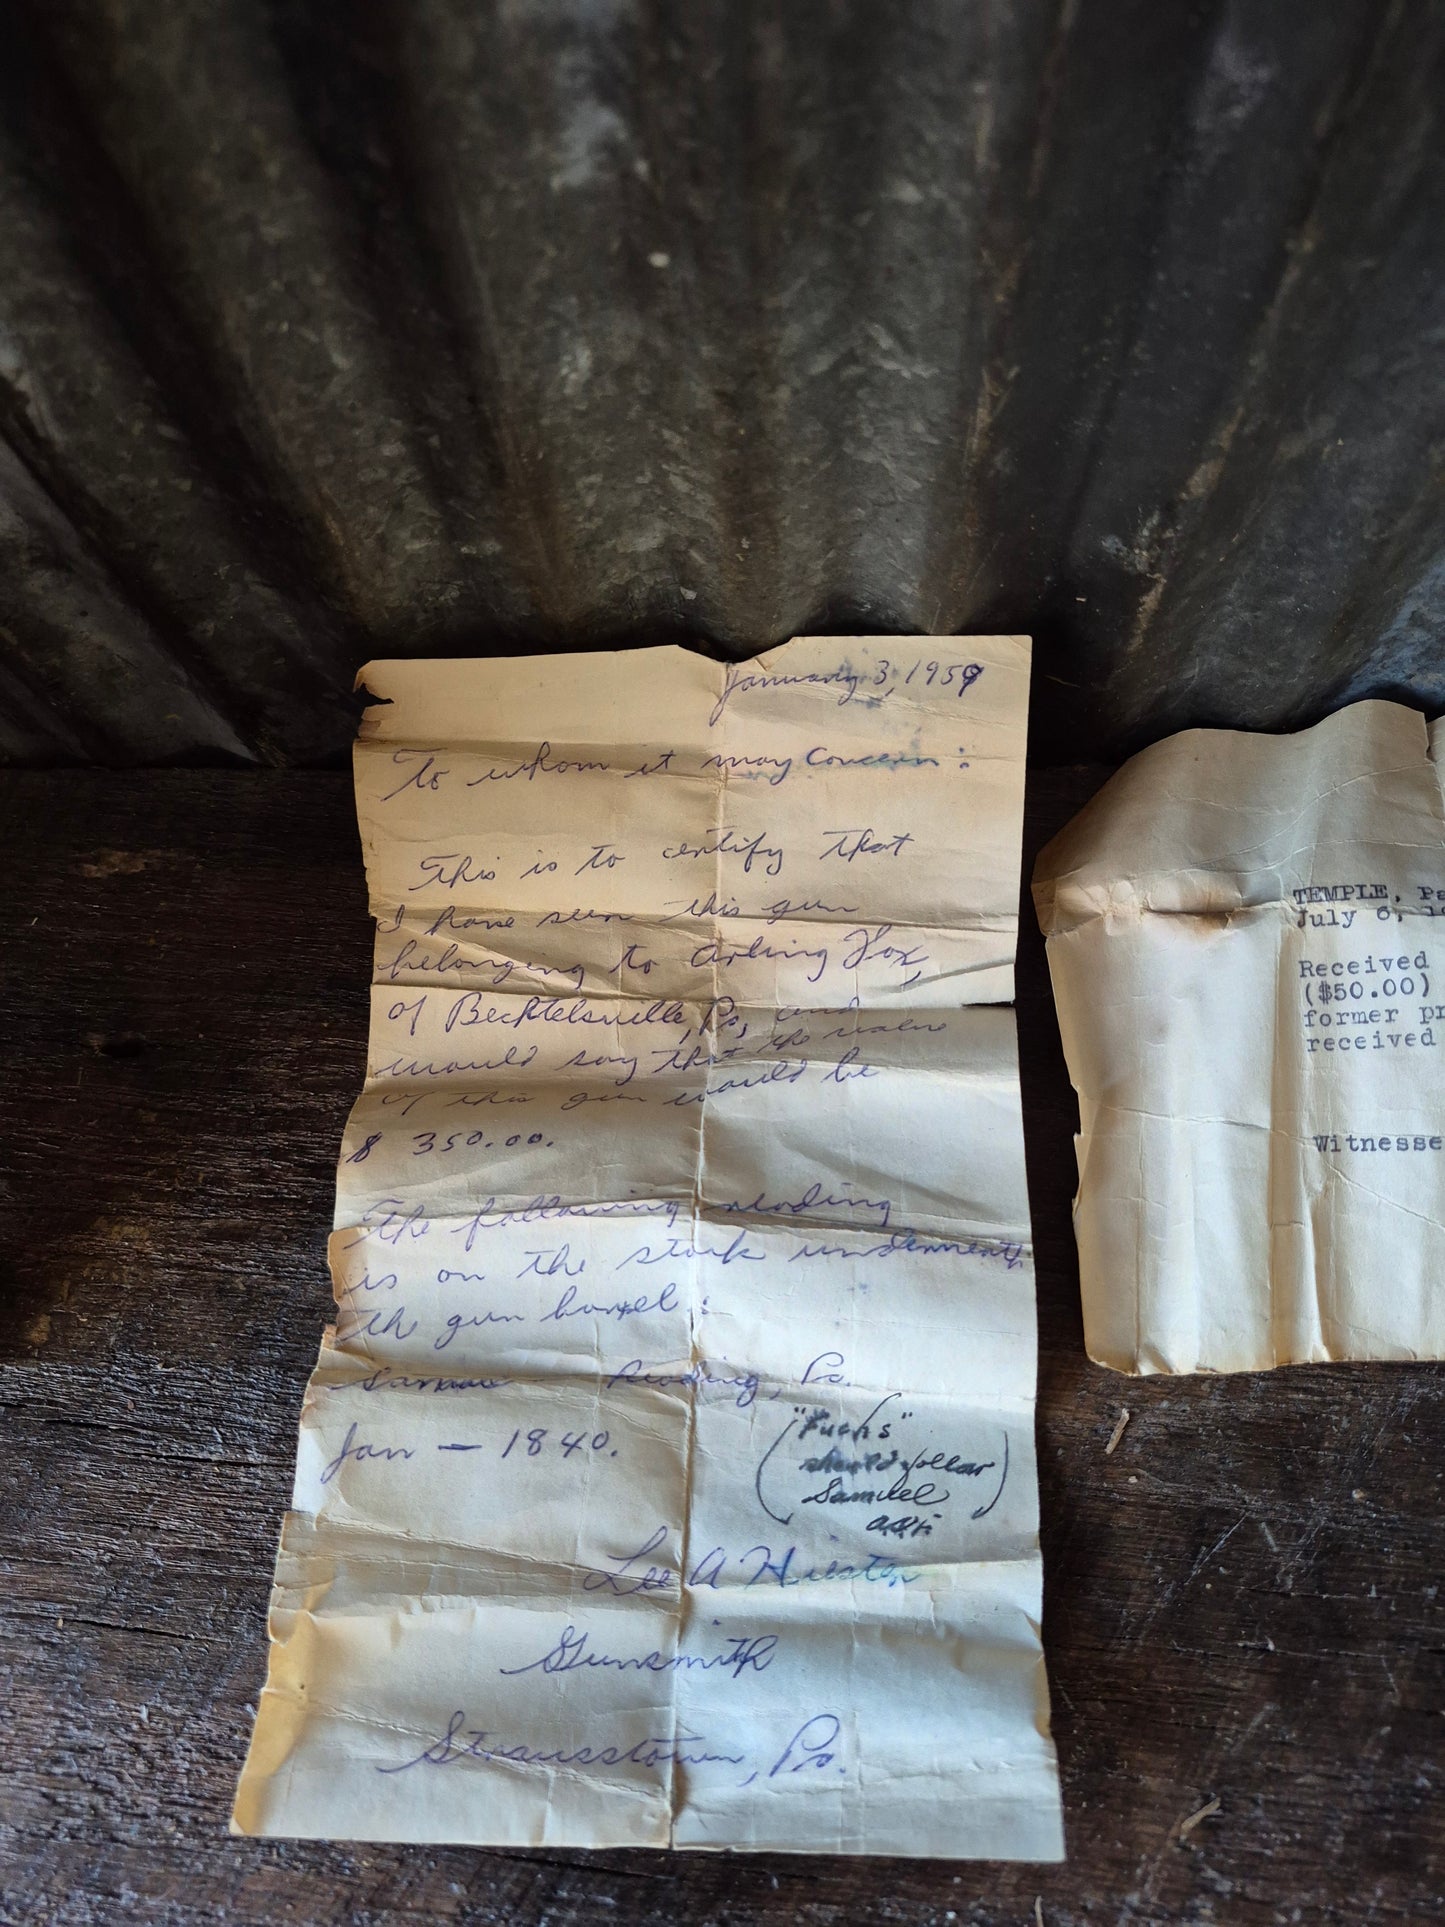 January 3, 1959
To whom it may concern:
This is to certify that
I have seen this gun
belonging to Arling Fox,
of Bechtelsville, Pa, and
would say that the value
of this gun would be
$ 350.00.
The following reading
is on the stock underneath
the gun barrel:
Reading, Pa.
Jan — 1840.
("Fuchs"
should follow
Samuel
Lee A
Gunsmith
Strausstown, Pa.
TEMPLE, Pa
July 6,
Received
($50.00)
former pr
received
Witnesse